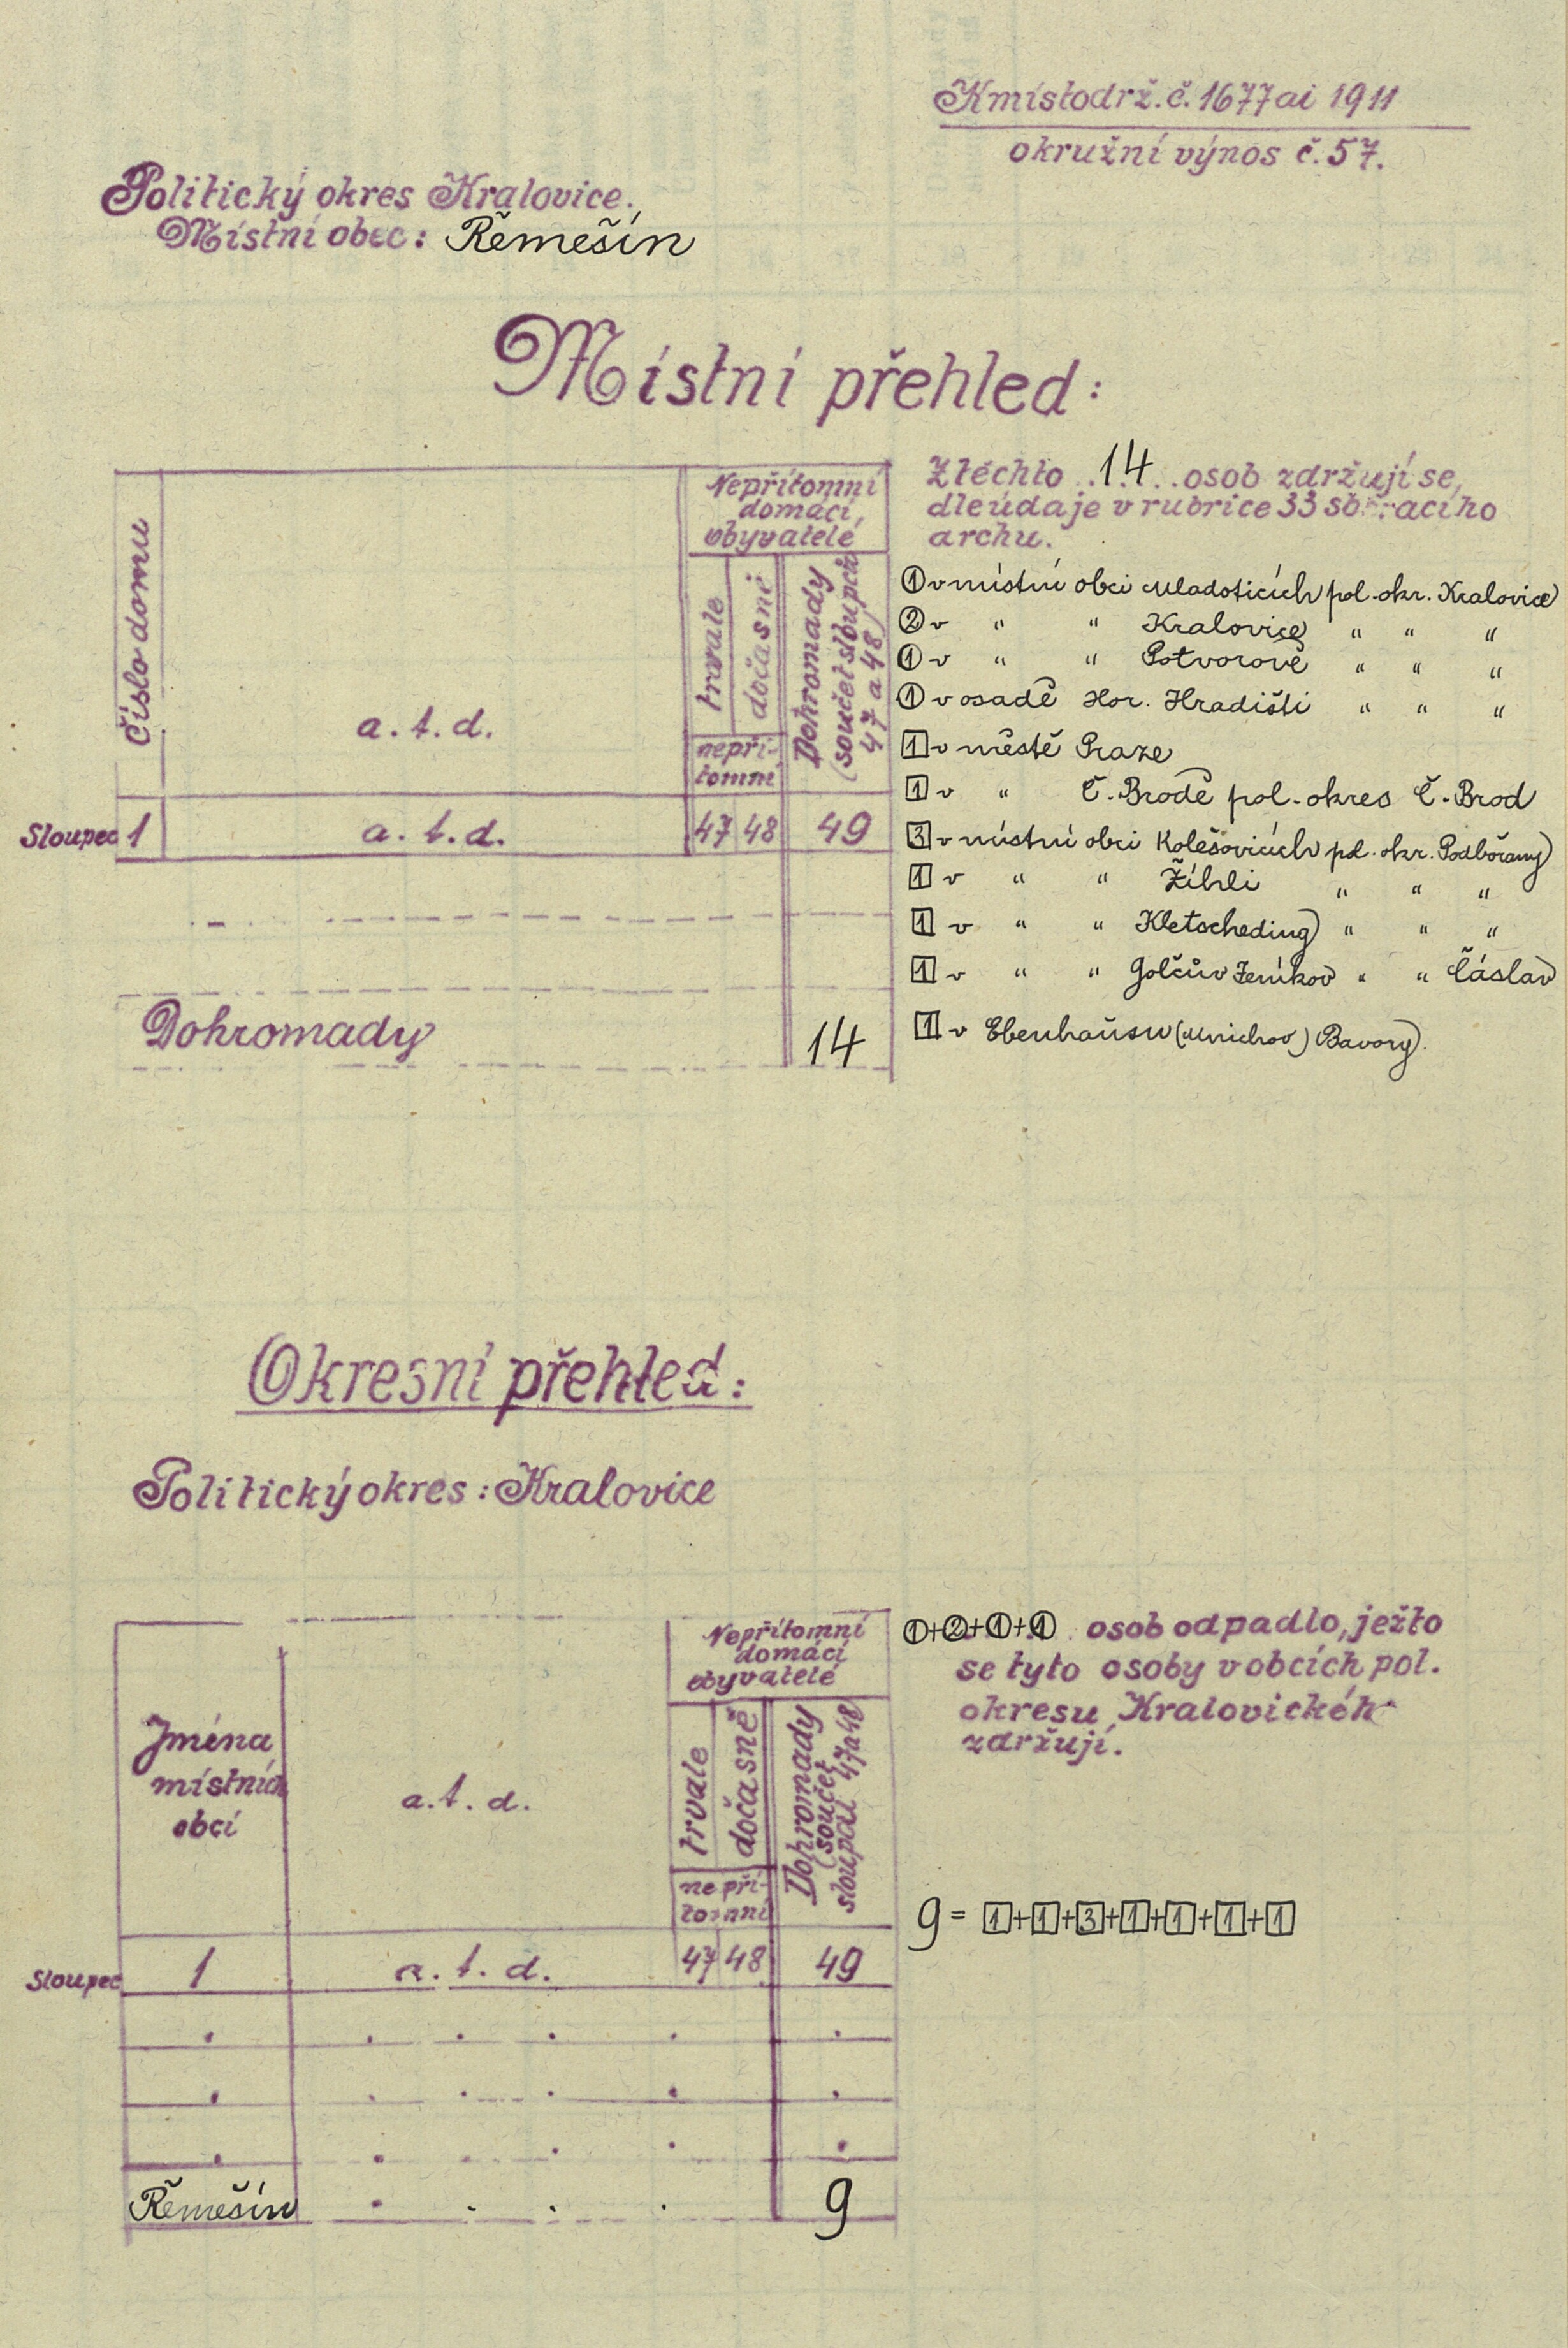 K místodrž. č. 1677 ai 1911
okružní výnos č. 57.
Politický okres Kralovice.
Místní obec: Řemešín
Místní přehled:
Číslo domu
a. t. d.
Nepřítomní
domácí
obyvatelé
trvale
dočasně
nepří-
tomni
Dohromady
(součet sloupců
47 a 48)
Sloupec 1 a. t. d. 47 48 49
Dohromady 14
Z těchto 14 osob zdržují se,
dle údaje v rubrice 33 sběracího
archu.
① v místní obci Mladoticích pol. okr. Kralovice
② v " " Kralovice " " "
① v " " Potvorově " " "
① v osadě Hor. Hradišti " " "
1 v městě Praze
1 v " Č. Brodě pol. okres Č. Brod
3 v místní obci Kolešovicích pol. okr. Podbořany
1 v " " Žíhli " " "
1 v " " Kletscheding " " "
1 v " " Golčův Jeníkov " " Čáslav
1 v Ebenhausu (Mnichov) Bavory.
Okresní přehled:
Politický okres: Kralovice
Jména
místních
obcí
a. t. d.
Nepřítomní
domácí
obyvatelé
trvale
dočasně
nepří-
tomní
Dohromady
(součet
sloupců 47 a 48
Sloupec 1 a. t. d. 47 48 49
Řemešín 9
①+②+①+① osob odpadlo, ježto
se tyto osoby v obcích pol.
okresu Kralovickéh
zdržují.
9 = 1+1+3+1+1+1+1